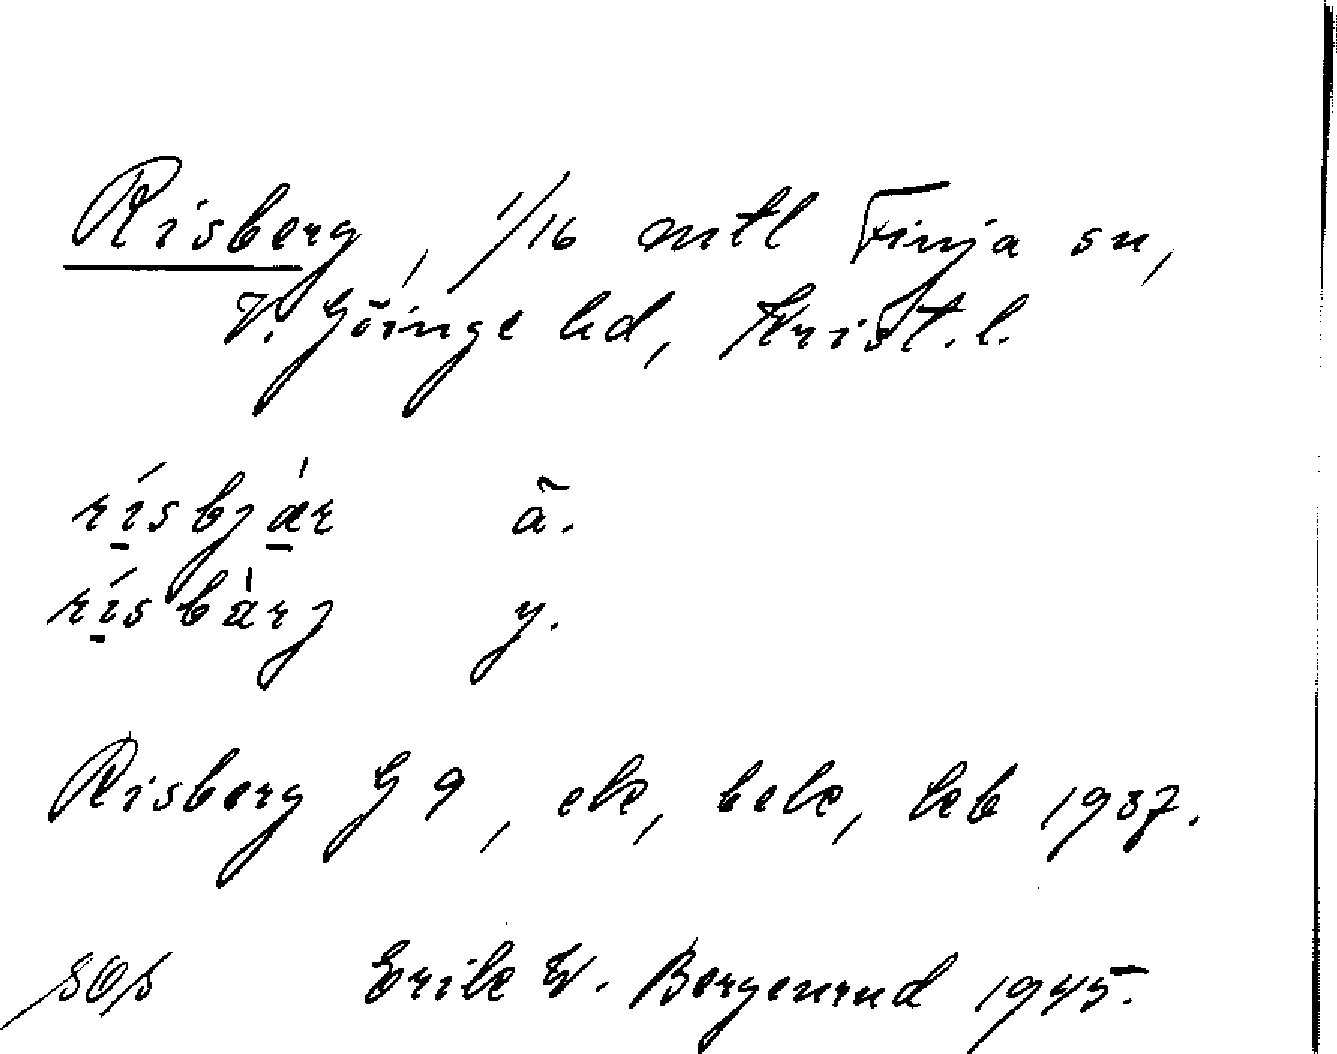 Risberg, 1/16 mtl Finja sn,
V. Göinge hd, Krist. l.
rísbjàr ä.
rísbàrj y.
Risberg G 9, ek, bek, kb 1937.
SOS Erik W. Bergenrud 1945.